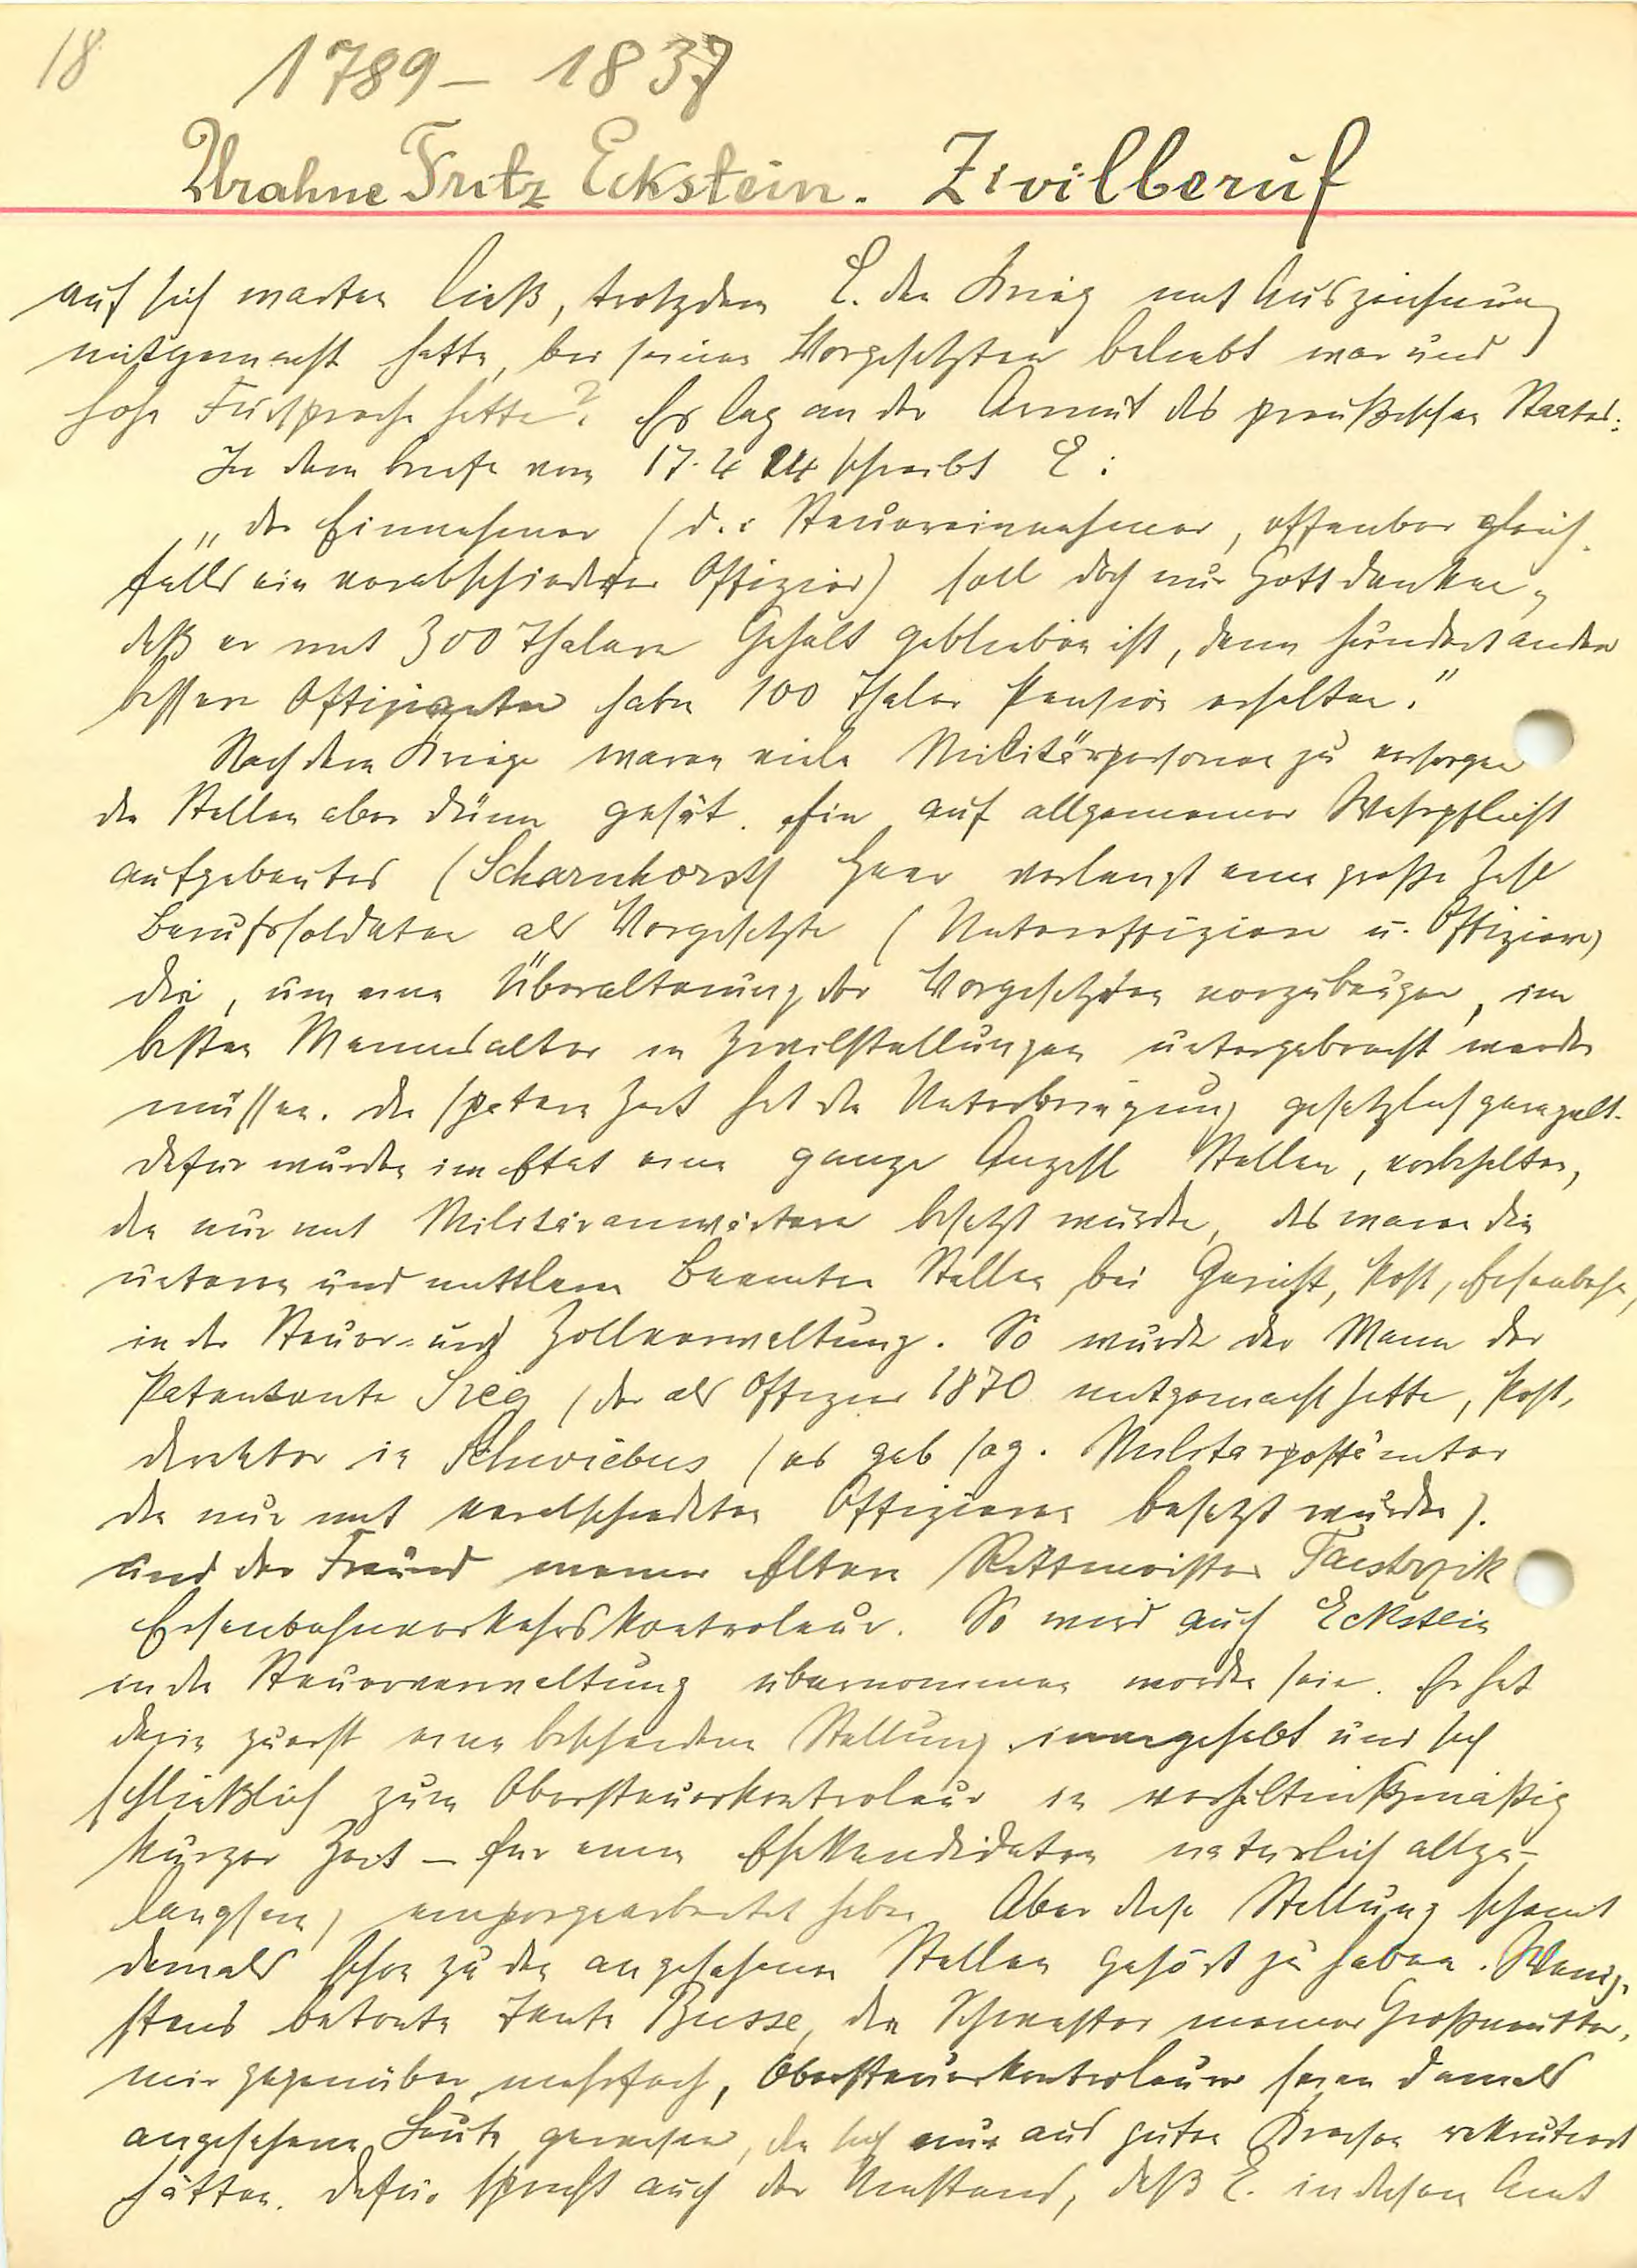 18
1789 - 1837
Urahne Fritz Eckstein. Zivilberuf
auf sich warten ließ, trotzdem E. den Krieg mit Auszeichnung
mitgemacht hatte, bei seinen Vorgesetzten beliebt war und
hohe Fürsprache hatte? Es lag an der Armut des preußischen Staates:
In dem Briefe vom 17.4 24 schreibt E:
„der Einnehmer (d.i. Steuereinnehmer, offenbar gleich-
falls ein verabschiedeter Offizier) soll doch nur Gott danken,
daß er mit 300 Thalern Gehalt geblieben ist, denn hundert andere
bessere Offizianten haben 100 Thaler Pension erhalten."
Nach dem Kriege waren viele Militärpersonen zu versorgen
die Stellen aber dünn gesät. Ein auf allgemeiner Wehrpflicht
aufgebautes (Scharnhorst) Heer verlangt eine große Zahl
Berufssoldaten als Vorgesetzte (Unteroffiziere u. Offiziere)
die, um eine Überalterung der Vorgesetzten vorzubeugen, im
besten Mannesalter in Zivilstellungen untergebracht werden
müssen. Die spätere Zeit hat die Unterbringung gesetzlich geregelt.
Dafür wurden im Etat eine ganze Anzahl Stellen, vorbehalten,
die nur mit Militäranwärtern besetzt wurden, das waren die
unteren und mittleren Beamten Stellen bei Gericht, Post, Eisenbahn,
in der Steuer- und Zollverwaltung. So wurde der Mann der
Patentante Sieg (der als Offizier 1870 mitgemacht hatte, Post-
direktor in Schwiebus (es gab sog. Militärpostämter
die nur mit verabschiedeten Offizieren besetzt wurden).
und der Freund meiner Eltern Rittmeister
Eisenbahnverkehrskontroleur. So wird auch Eckstein
in die Steuerverwaltung übernommen worden sein. Er hat
darin zuerst eine bescheidene Stellung innegehabt und sich
schließlich zum Obersteuerkontroleur in verhältnißmäßig
kurzer Zeit – für einen Ehekandidaten natürlich allzu-
langsam, emporgearbeitet haben. Aber diese Stellung scheint
damals schon zu den angesehenen Stellen gehört zu haben. Wenig-
stens betonte Tante Busse, die Schwester meiner Großmutter,
mir gegenüber mehrfach, Obersteuerkontroleure seien damals
angesehene Leute gewesen, die sich nur aus guten Kreisen rekrutiert
hätten. Dafür spricht auch der Umstand, daß E. in diesem Amt